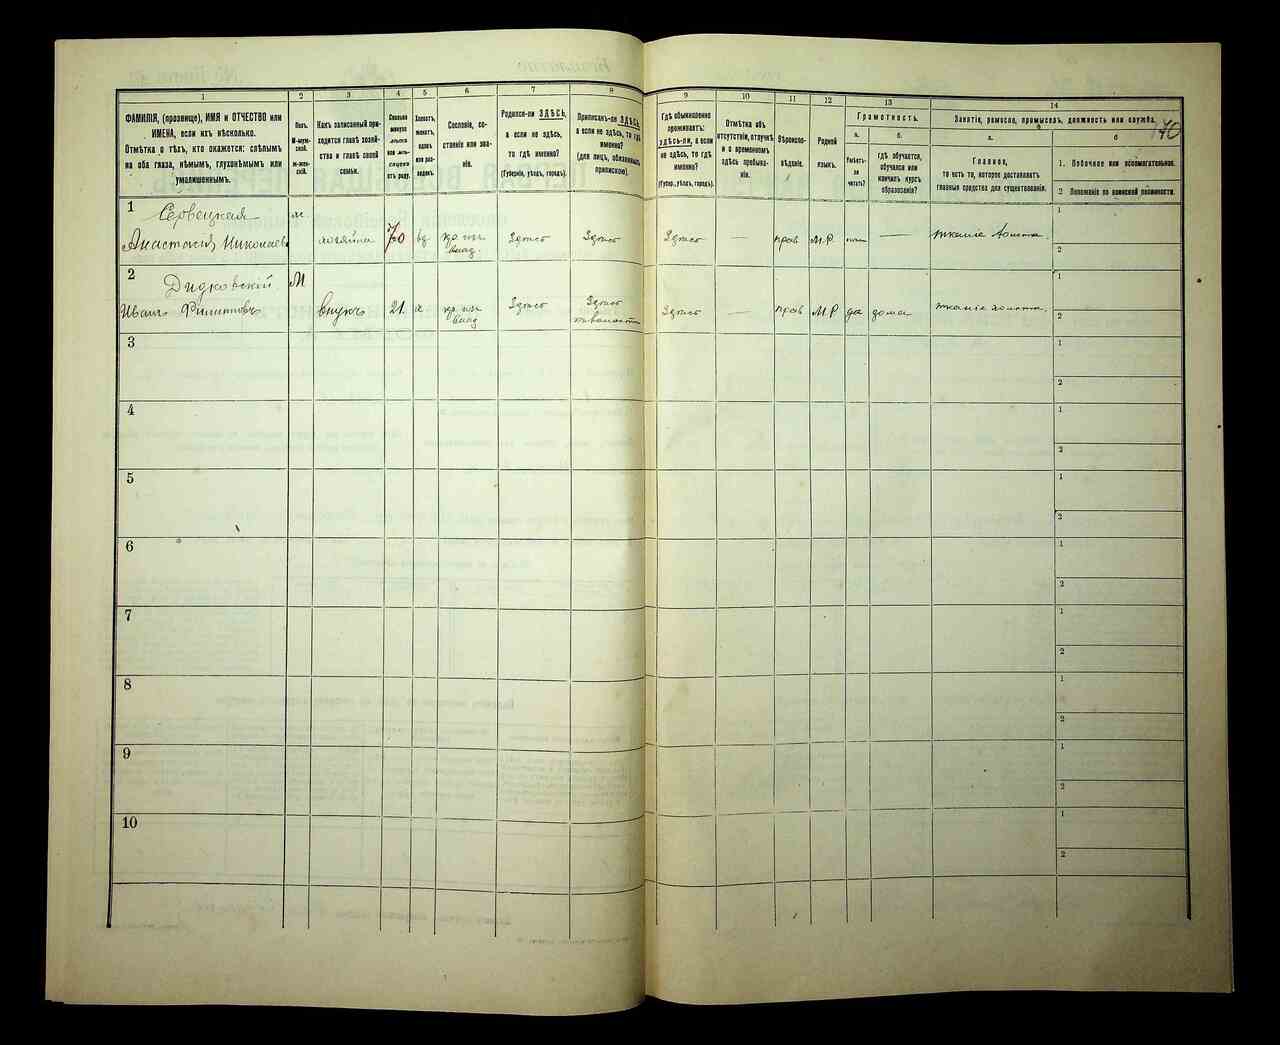 1
2
3
4
5
6
7
8
9
10
11
12
13
14
ФАМИЛІЯ, (прозвище), ИМЯ и ОТЧЕСТВО или
ИМЕНА, если ихъ нѣсколько.
Отмѣтка о тѣхъ, кто окажется: слѣпымъ
на оба глаза, нѣмымъ, глухонѣмымъ или
умалишеннымъ.
Полъ.
М-муж-
ской.
Ж-жен-
скій.
Какъ записанный при-
ходится главѣ хозяй-
ства и главѣ своей
семьи.
Сколько
минуло
лѣтъ
или мѣ-
сяцевъ
отъ роду.
Холостъ,
женатъ,
вдовъ
или раз-
веденъ.
Сословіе, со-
стояніе или зва-
ніе.
Родился-ли ЗДѢСЬ,
а если не здѣсь,
то гдѣ именно?
(Губернія, уѣздъ, городъ).
Приписанъ-ли ЗДѢСЬ,
а если не здѣсь, то гдѣ
именно?
(для лицъ, обязанныхъ
припиской).
Гдѣ обыкновенно
проживаетъ:
здѣсь-ли, а если
не здѣсь, то гдѣ
именно?
(Губер., уѣздъ, городъ).
Отмѣтка объ
отсутствіи, отлучкѣ
и о временномъ
здѣсь пребыва-
ніи.
Вѣроиспо-
вѣданіе.
Родной
языкъ.
Грамотность.
а.
Умѣетъ-
ли
читать?
б.
гдѣ обучается,
обучался или
кончилъ курсъ
образованія?
Занятіе, ремесло, промыселъ, должность или служба.
140
а.
Главное,
то есть то, которое доставляетъ
главныя средства для существованія.
б
1. Побочное или вспомогательное.
2 Положеніе по воинской повинности.
1
Анастасія Николаев
хозяйка
70
вд
кр изъ
влад.
Здѣсь
Здѣсь
Здѣсь
—
прав
М.Р.
—
тканіе холста
1
2
2
Дидковскій
Иванъ Филипповъ
М
внукъ
21
х
кр изъ
влад
Здѣсь
Здѣсь
Здѣсь
—
прав
М.Р
да
дома
тканіе холста.
1
2
3
1
2
4
1
2
5
1
2
6
1
2
7
1
2
8
1
2
9
1
2
10
1
2